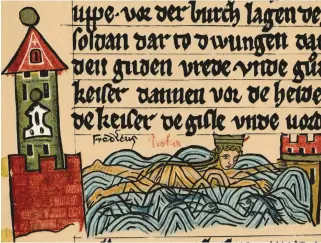 uppe · vor der burch lagen de
soldan dar to dwungen dat
den guden vrede · vnde gu
keiser dannen vor de heide
de keiser de gisle vnde uord
Fredericus